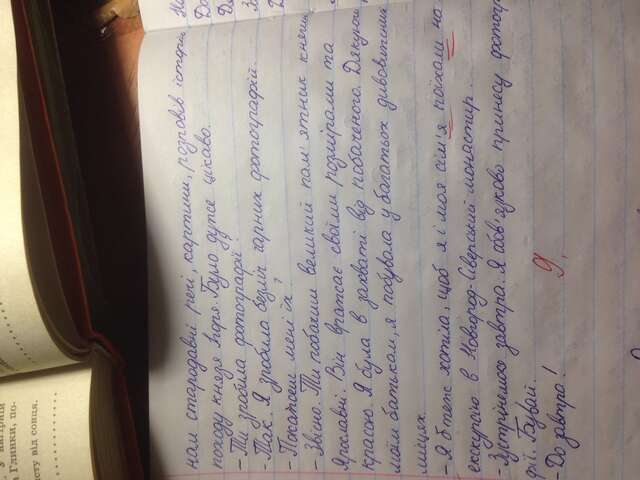 нам стародавні речі, картини, розповів історію
походу князя Ігоря. Було дуже цікаво.
- Ти зробила фотографії?
- Так. Я зробила безліч гарних фотографій.
- Покажеш мені їх?
- Звісно. Ти побачиш великий пам'ятник княгині
Ярославні. Він вражає своїми розмірами та
красою. Я була в захваті від побаченого. Дякуючи
моїм батькам, я побувала у багатьох дивовижних
місцях.
- Я б теж хотіла, щоб я і моя сім'я поїхали на
екскурсію в Новгород-Сіверський монастир.
- Зустрінемось завтра. Я обов'язково принесу фотогра-
фії. Бувай.
- До завтра!
9
Глинки, по-
исту від сонця.